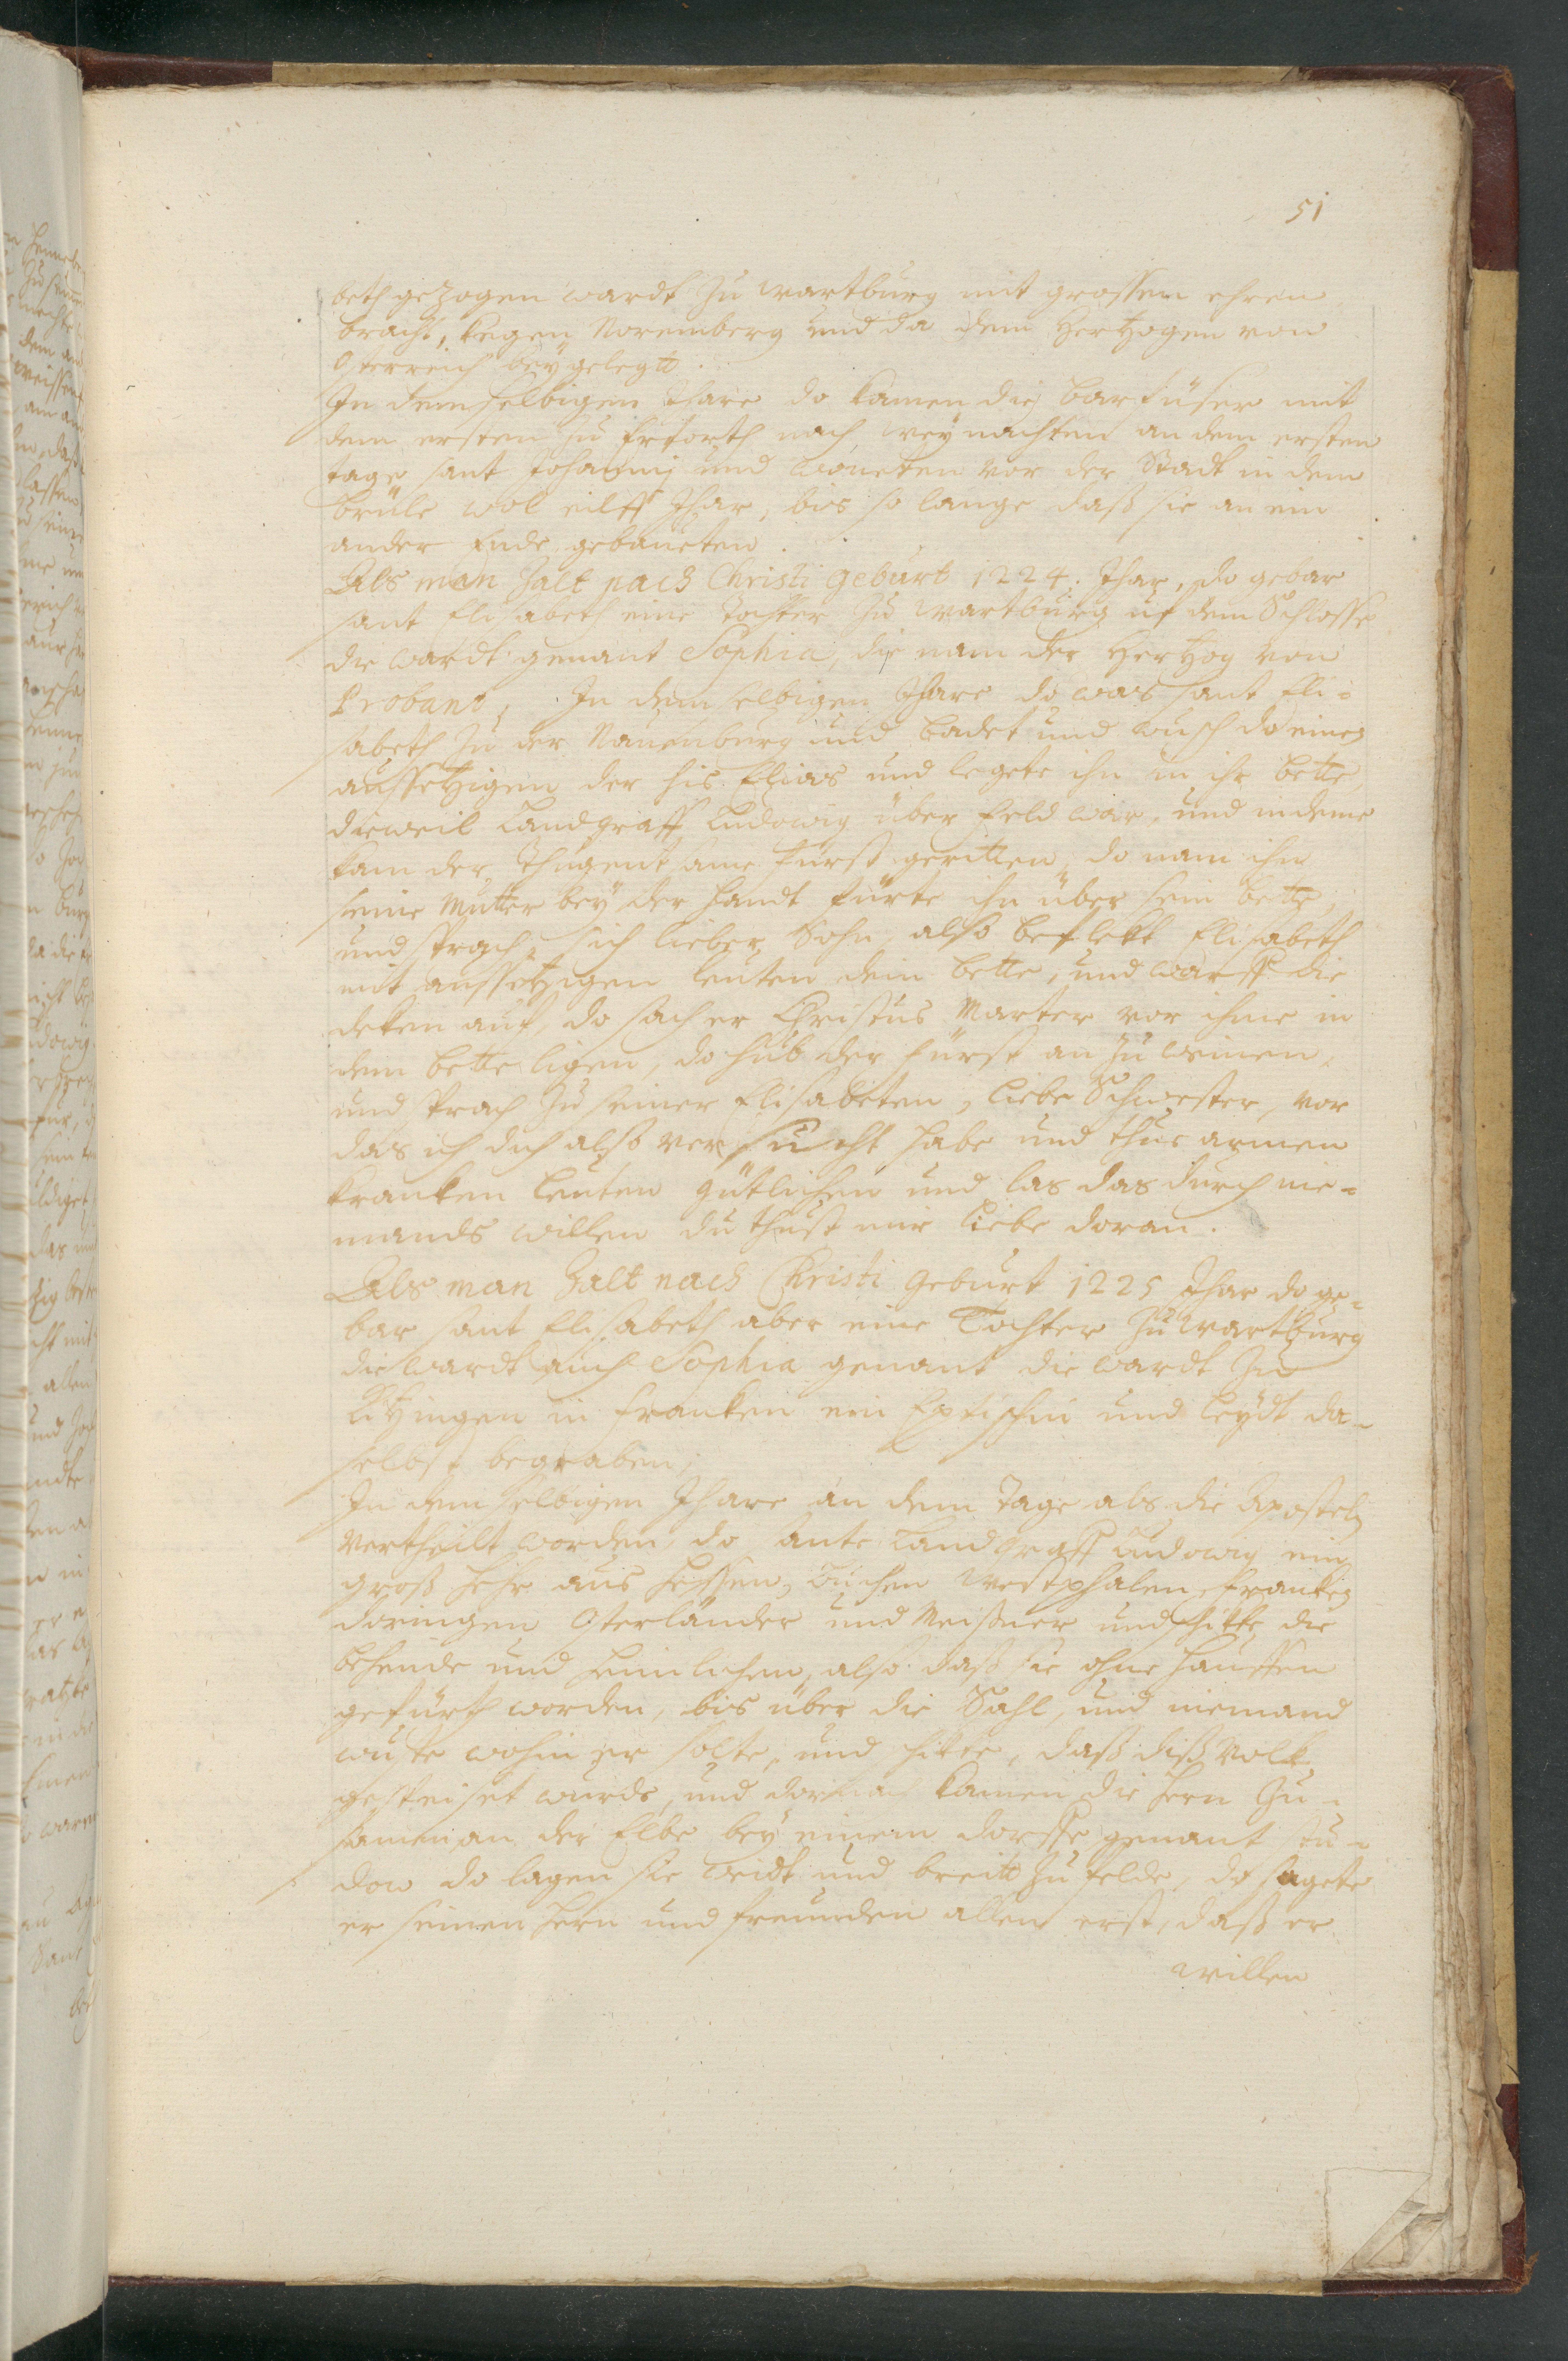 51
beth gezogen wardt zu wartburg mit grossen ehren
bracht, kegen Noremberg und da dem Hertzogen von
Osterreich beygelegtt.
In demselbigen Jhare do kamen die barfüser mit
dem ersten zu Erforth nach weynachten an dem ersten
tage sant Johannis und woneten vor der Stadt in dem
brüle wol eilff Jhar, bis so lange daß sie an ein
ander Ende gebaueten.
Als man Zalt nach Christi geburt 1224. Jhar, do gebar
sant Elisabeth eine Tochter zu Wartburg uf dem Schlosse
die wardt genant Sophia, die nam der Hertzog von
Probant, In dem selbigen Jhare do was sant Eli=
sabeth zu der Nauenburg und badet und wusch do einen
aussetzigen der his Elias und legete ihn in ihr bette,
dieweil Landgraff Ludowig über feld war, und indeme
kam der thugentsame fürst geritten, do nam ihn
seine Mutter bey der handt fürte ihn über sein bette,
und sprach, sich lieber Sohn, also beflekt Elisabeth
mit aussetzigen leuten dein bette, und warff die
deken auf, do sach er Christus Marter vor ihme in
dem bette ligen, do hub der fürst an zu weinen,
und sprach zu seiner Elisabeten, liebe Schwester, vor
das ich dich also versucht habe und thue armen
kranken leuten gütlichen und las das durch nie=
mands willen du thust mir liebe doran.
Als man Zalt nach Christi Geburt 1225 Jhar do ge=
bar sant Elisabeth aber eine Tochter zu Wartburg
die wardt auch Sophia genant die wardt zu
Kitzingen in franken ein Eptischin und leydt da=
selbst begraben,
In dem selbigen Jhare an dem Tage als die Aposteln
vertheilt worden, do sante Landgraff Ludowig ein
groß hehr aus Hessen, Buchen Westphalen, franken
doringen Osterländer und Meißner und schikte die
behende und heimlichen, also daß sie ohne hauffen
gefürth worden, bis über die Sahl, und niemand
wuste wohin er solte, und schikte, daß diß Volk
gespeiset wurde, und dornach kamen die hern zu=
samen an der Elbe bey einem dorffe genant
do lagen sie weidt und breitt zu felde, do sagete
er seinen hern und freunden allen erst, daß er
willen